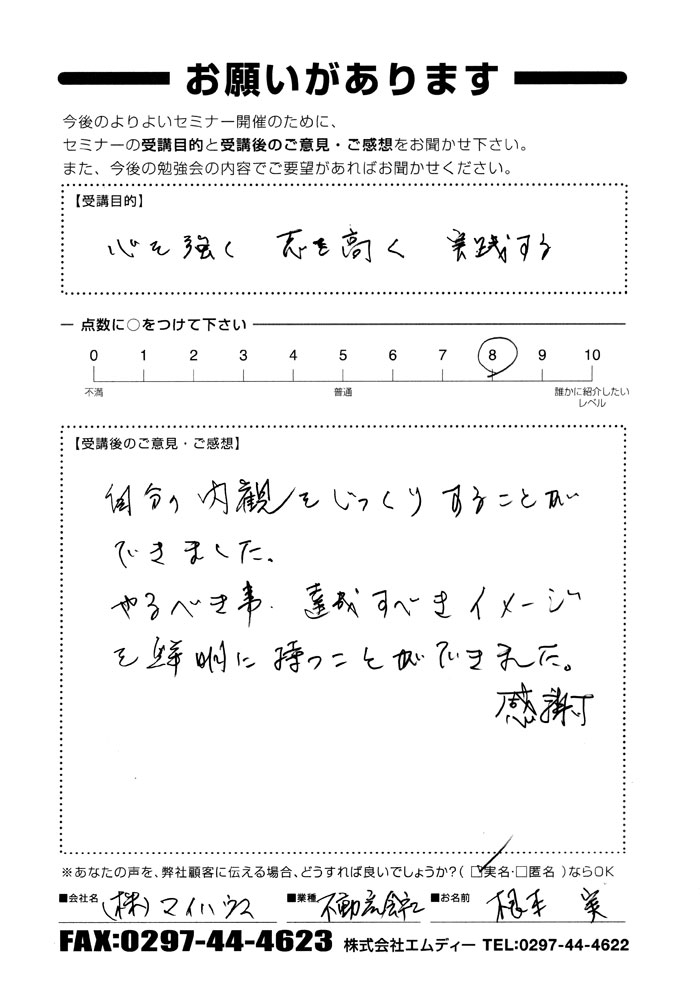 お願いがあります
今後のよりよいセミナー開催のために、
セミナーの受講目的と受講後のご意見・ご感想をお聞かせ下さい。
また、今後の勉強会の内容でご要望があればお聞かせください。
【受講目的】
心を強く 志を高く 実践する
点数に○をつけて下さい
0 1 2 3 4 5 6 7 8 9 10
不満 普通 誰かに紹介したい
レベル
【受講後のご意見・ご感想】
自分の内観をじっくりすることが
できました。
やるべき事、達成すべきイメージ
を鮮明に持つことができました。
感謝
※あなたの声を、弊社顧客に伝える場合、どうすれば良いでしょうか?( □実名・□匿名 )ならOK
■会社名 (株)マイハウス ■業種 不動産会社 ■お名前 根本 実
FAX:0297-44-4623 株式会社エムディー TEL:0297-44-4622